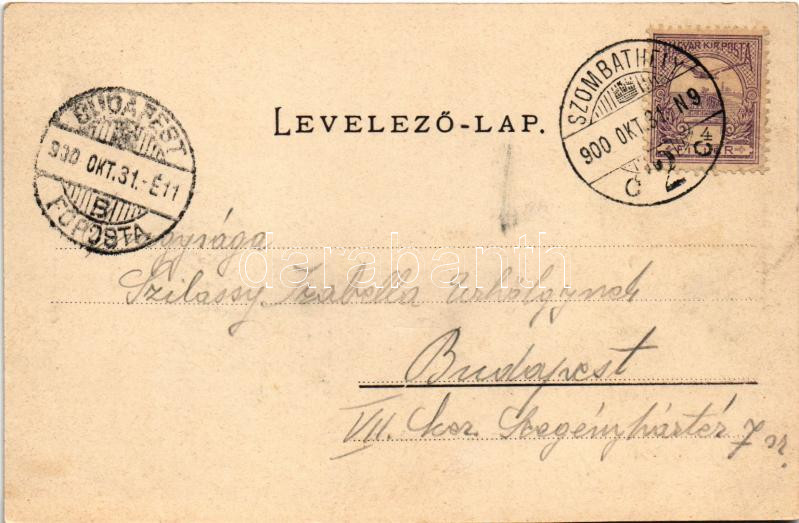 MAGYAR KIR. POSTA
4
FILLÉR
SZOMBATHELY
900 OKT. 31. N 9
BUDAPEST
900 OKT. 31. - É11
B
FŐPOSTA
LEVELEZŐ-LAP.
darabanth
Szilassy Izabella Urhölgynek
Budapest
VII. ker. Szegényháztér 7 sz.